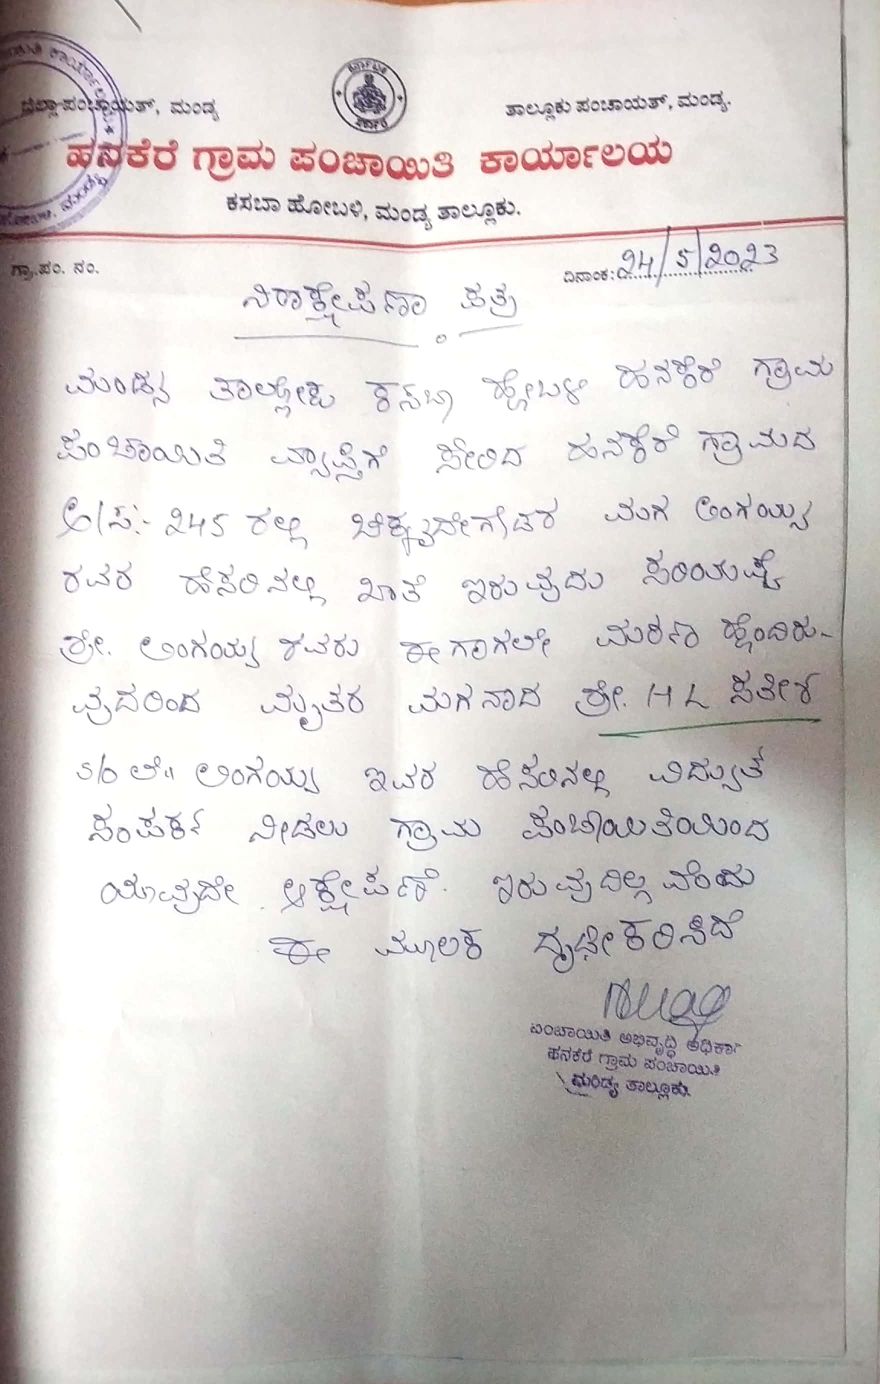 ಜಿಲ್ಲಾ ಪಂಚಾಯತ್, ಮಂಡ್ಯ
ತಾಲ್ಲೂಕು ಪಂಚಾಯತ್, ಮಂಡ್ಯ.
ಹನಕೆರೆ ಗ್ರಾಮ ಪಂಚಾಯಿತಿ ಕಾರ್ಯಾಲಯ
ಕಸಬಾ ಹೋಬಳಿ, ಮಂಡ್ಯ ತಾಲ್ಲೂಕು.
ಗ್ರಾ.ಪಂ. ನಂ.
ದಿನಾಂಕ: 24/5/2023
ನಿರಾಕ್ಷೇಪಣಾ ಪತ್ರ
ಮಂಡ್ಯ ತಾಲ್ಲೋಕು ಕಸಬಾ ಹೋಬಳಿ ಹನಕೆರೆ ಗ್ರಾಮ
ಪಂಚಾಯಿತಿ ವ್ಯಾಪ್ತಿಗೆ ಸೇರಿದ ಹನಕೆರೆ ಗ್ರಾಮದ
245 ರಲ್ಲಿ ಮಗ ಲಿಂಗಯ್ಯ
ರವರ ಹೆಸರಿನಲ್ಲಿ ಖಾತೆ ಇರುವುದು ಸರಿಯಷ್ಟೆ
ಶ್ರೀ. ಲಿಂಗಯ್ಯ ರವರು ಈಗಾಗಲೇ ಮರಣ ಹೊಂದಿರು-
ವುದರಿಂದ ಮೃತರ ಮಗನಾದ ಶ್ರೀ. H L ಸತೀಶ
S/o ಲೇ|| ಲಿಂಗಯ್ಯ ಇವರ ಹೆಸರಿನಲ್ಲಿ ವಿದ್ಯುತ್
ಸಂಪರ್ಕ ನೀಡಲು ಗ್ರಾಮ ಪಂಚಾಯಿತಿಯಿಂದ
ಯಾವುದೇ ಆಕ್ಷೇಪಣೆ ಇರುವುದಿಲ್ಲವೆಂದು
ಈ ಮೂಲಕ ದೃಢೀಕರಿಸಿದೆ
ಪಂಚಾಯಿತಿ ಅಭಿವೃದ್ಧಿ ಅಧಿಕಾರಿ
ಹನಕೆರೆ ಗ್ರಾಮ ಪಂಚಾಯಿತಿ
ಮಂಡ್ಯ ತಾಲ್ಲೂಕು.